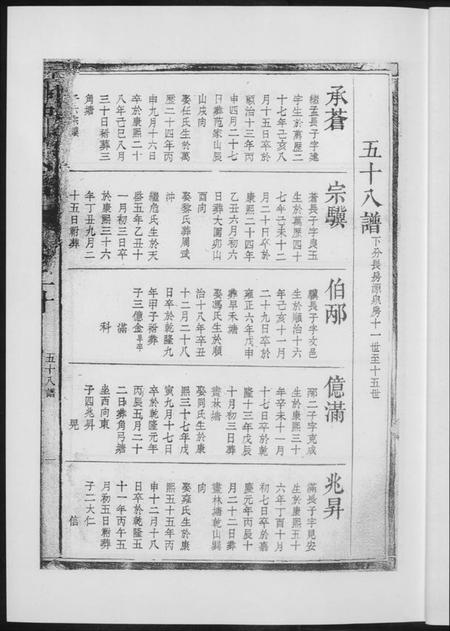 五十八譜 下分長房源泉房十一世至十五世
承蒼
楹孟長子字建
字生於萬曆二
十七年己亥八
月十五日卒於
順治十三年丙
申四月二十七
日葬范家山辰
山戌向
娶任氏生於萬
曆二十四年丙
申九月十六日
卒於康熙二十
八年己巳八月
三十日祔葬三
角塘
宗驥
蒼長子字良玉
生於萬曆四十
七年己未十二
月二十日卒於
康熙二十四年
乙丑六月初六
日葬大園卯山
酉向
娶黎氏葬周武
沖
繼危氏生於天
啟五年乙丑十
一月初三日卒
於康熙三十六
年丁丑九月二
十五日祔葬
伯邴
驥長子字文邑
生於順治十六
年己亥十一月
二十九日卒於
雍正六年戊申
葬早禾塘
娶馮氏生於順
治十八年辛丑
十二月二十八
日卒於乾隆九
年甲子祔葬
子三億金早卒
滿
科
億滿
邴二子字克成
生於康熙三十
年辛未十一月
十七日卒於乾
隆十三年戊辰
十月初三日葬
畫林塘
娶周氏生於康
熙三十七年戊
寅九月十七日
卒於乾隆元年
丙辰五月二十
二日葬角弓塘
坐西向東
子四兆昇
晃
兆昇
滿長子字見安
生於康熙五十
六年丁酉十月
初七日卒於嘉
慶元年丙辰十
月二十二日葬
畫林塘乾山巽
向
娶雍氏生於康
熙五十五年丙
申十二月十八
日卒於乾隆五
十一年丙午五
月初五日祔葬
子二大仁
信
五十八譜